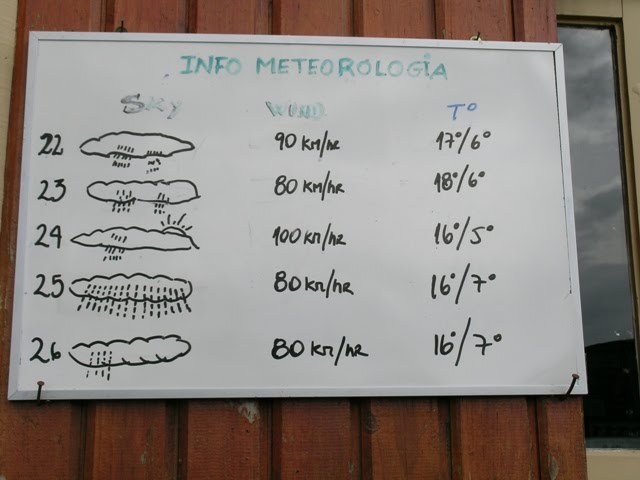 INFO METEOROLOGIA
SKY WIND T°
22 90 KM/HR 17°/6°
23 80 KM/HR 18°/6°
24 100 KM/HR 16°/5°
25 80 KM/HR 16°/7°
26 80 KM/HR 16°/7°